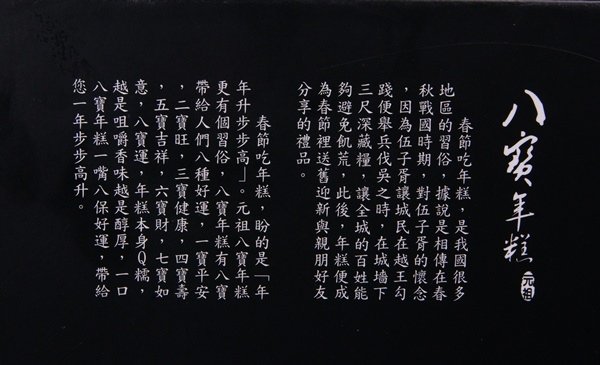 八寶年糕
元祖
春節吃年糕，是我國很多
地區的習俗，據說是相傳在春
秋戰國時期，對伍子胥的懷念
，因為伍子胥讓城民在越王勾
踐便舉兵伐吳之時，在城墻下
三尺深藏糧，讓全城的百姓能
夠避免飢荒，此後，年糕便成
為春節裡送舊迎新與親朋好友
分享的禮品。
春節吃年糕，盼的是「年
年升步步高」。元祖八寶年糕
更有個習俗，八寶年糕有八寶
帶給人們八種好運，一寶平安
，二寶旺，三寶健康，四寶壽
，五寶吉祥，六寶財，七寶如
意，八寶運，年糕本身Q糯，
越是咀嚼香味越是醇厚，一口
八寶年糕一嘴八保好運，帶給
您一年步步高升。